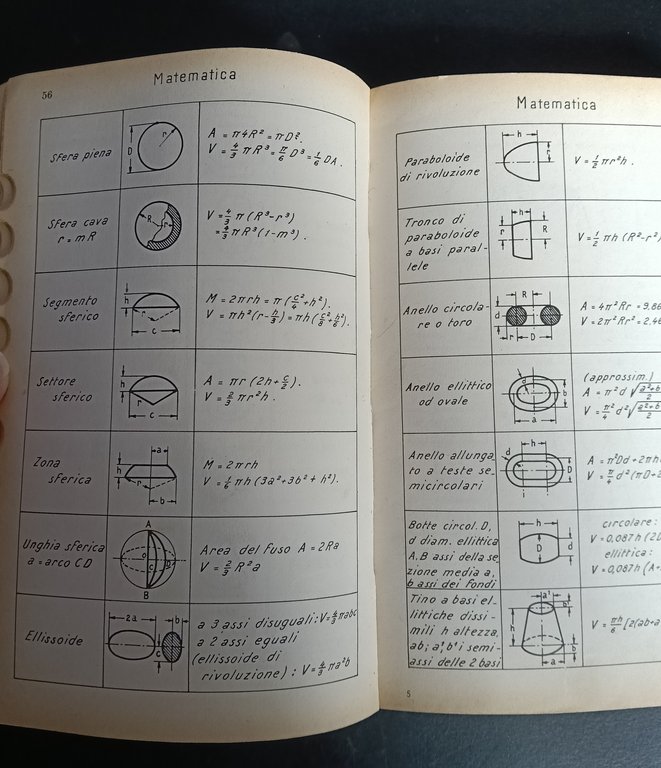 56
Matematica
Sfera piena
D
r
A = π4R² = πD².
V = 4/3 πR³ = π/6 D³ = 1/6 DA.
Sfera cava
r = mR
R
r
V = 4/3 π (R³-r³)
= 4/3 πR³(1-m³).
Segmento
sferico
h
r
c
M = 2πrh = π(c²/4+h²).
V = πh²(r-h/3) = πh(c²/8+h²/6).
Settore
sferico
h
r
c
A = πr (2h + c/2).
V = 2/3 πr²h.
Zona
sferica
a
h
r
b
M = 2πrh
V = 1/6 πh (3a²+3b²+h²).
Unghia sferica
a = arco CD
A
o
B
Area del fuso A = 2Ra
V = 2/3 R²a
Ellissoide
2a
b
c
a 3 assi disuguali: V=4/3 πabc
a 2 assi eguali
(ellissoide di
rivoluzione) : V=4/3 πa²b
Matematica
Paraboloide
di rivoluzione
h
r
V = 1/2 πr²h.
Tronco di
paraboloide
a basi paral-
lele
h
r
R
V = 1/2 πh (R²-r²)
Anello circola-
re o toro
R
d
r
D
A = 4π²Rr = 9.86
V = 2π²Rr² = 2.46
Anello ellittico
od ovale
d
b
a
(approssim.)
A = π²d √a²+b²/2
V = π²/4 d² √a²+b²/2
Anello allunga-
to a teste se-
micircolari
h
d
D
A = π²Dd+2πh
V = π/4 d² (πD+2
Botte circol. D,
d diam. ellittica
A,B assi della se
zione media a,
b assi dei fondi
h
D
d
circolare:
V = 0,087h (2D
ellittica:
V = 0,087h (A
Tino a basi el-
littiche dissi-
mili h altezza,
ab; a',b' i semi-
assi delle 2 basi
a'
b'
h
b
a
V = πh/6 [2(ab+a
5